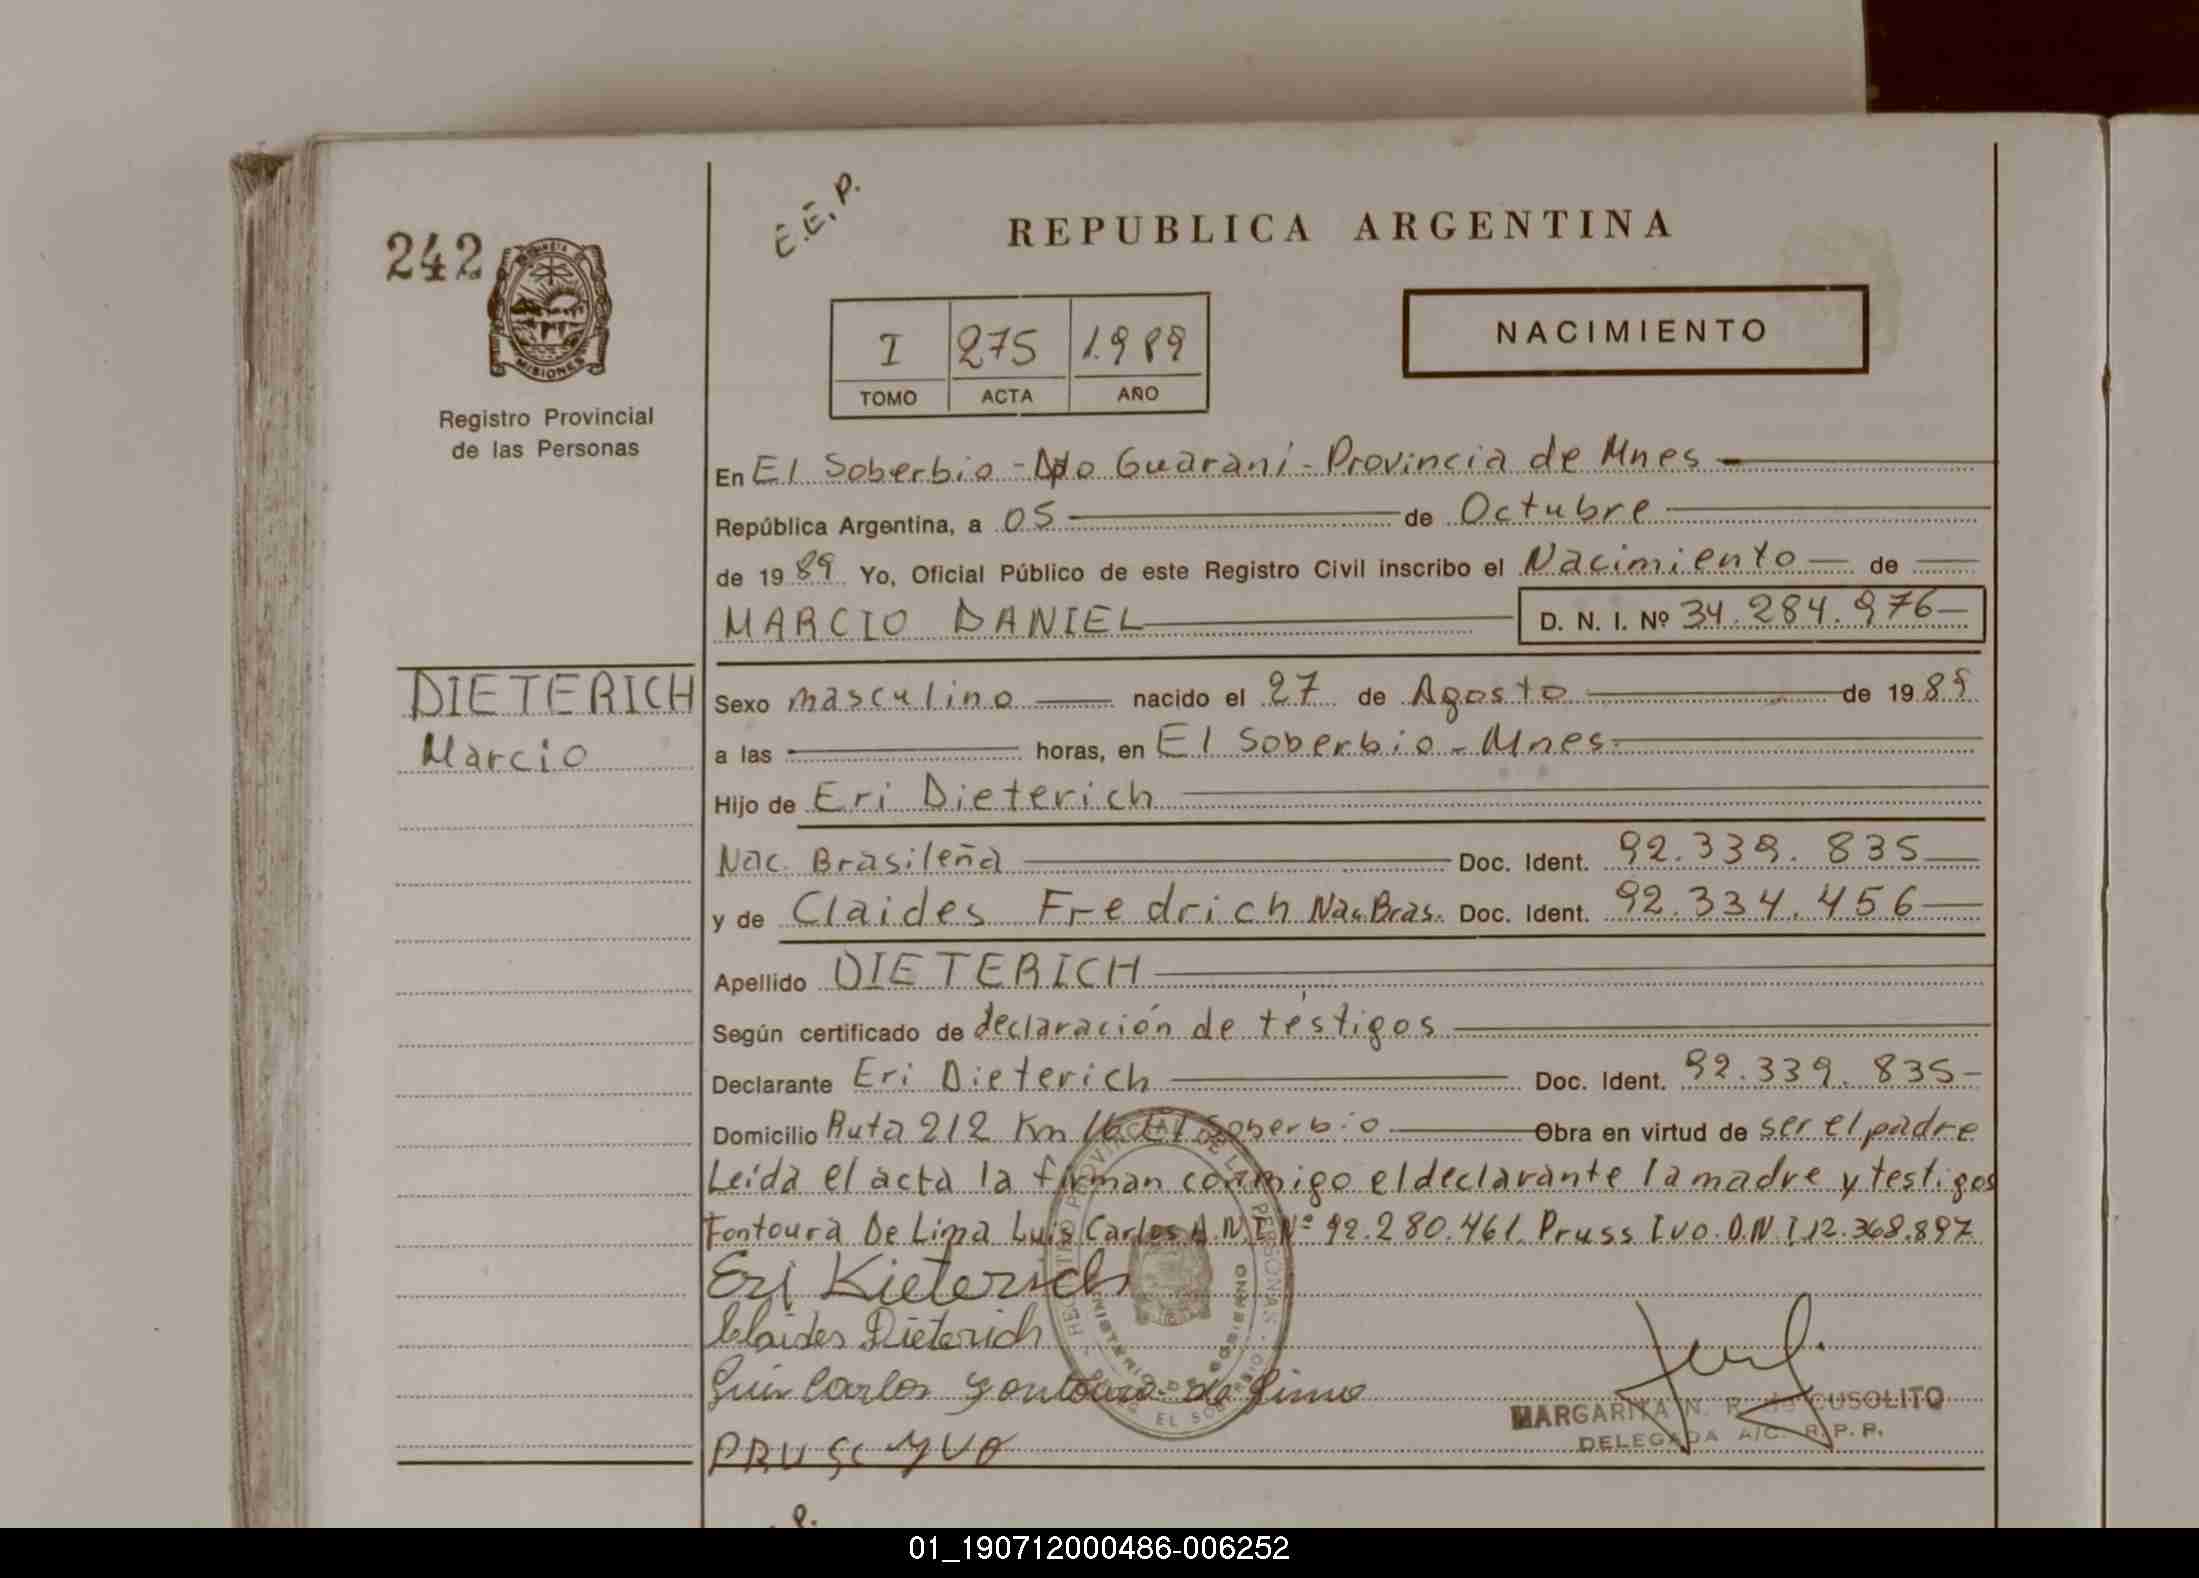 E.E.P.
REPUBLICA ARGENTINA
242
MISIONES
Registro Provincial
de las Personas
I 275 1.989
TOMO ACTA AÑO
NACIMIENTO
En El Soberbio - Dpto Guaraní - Provincia de Mnes
República Argentina, a 05 de Octubre
de 1989 Yo, Oficial Público de este Registro Civil inscribo el Nacimiento de
MARCIO DANIEL D. N. I. Nº 34.284.976
DIETERICH
Marcio
Sexo masculino nacido el 27 de Agosto de 1989
a las horas, en El Soberbio - Mnes
Hijo de Eri Dieterich
Nac. Brasileña Doc. Ident. 92.339.835
y de Claides Fredrich Nac. Bras. Doc. Ident. 92.334.456
Apellido DIETERICH
Según certificado de declaración de testigos
Declarante Eri Dieterich Doc. Ident. 92.339.835
Domicilio Ruta 212 Km 16 El Soberbio Obra en virtud de ser el padre
Leída el acta la firman conmigo el declarante la madre y testigos
Fontoura De Lima Luis Carlos D.N.I Nº 92.280.461 Pruss Ivo. D.N.I 12.368.897
Eri Dieterich
Claides Dieterich
Luis Carlos Fontoura de Lima
PRUSS YVO
REGISTRO PROVINCIAL DE LAS PERSONAS
MINISTERIO DE GOBIERNO
EL SOBERBIO
MARGARITA N. R. de CUSOLITO
DELEGADA A/C. R. P. P.
01_190712000486-006252